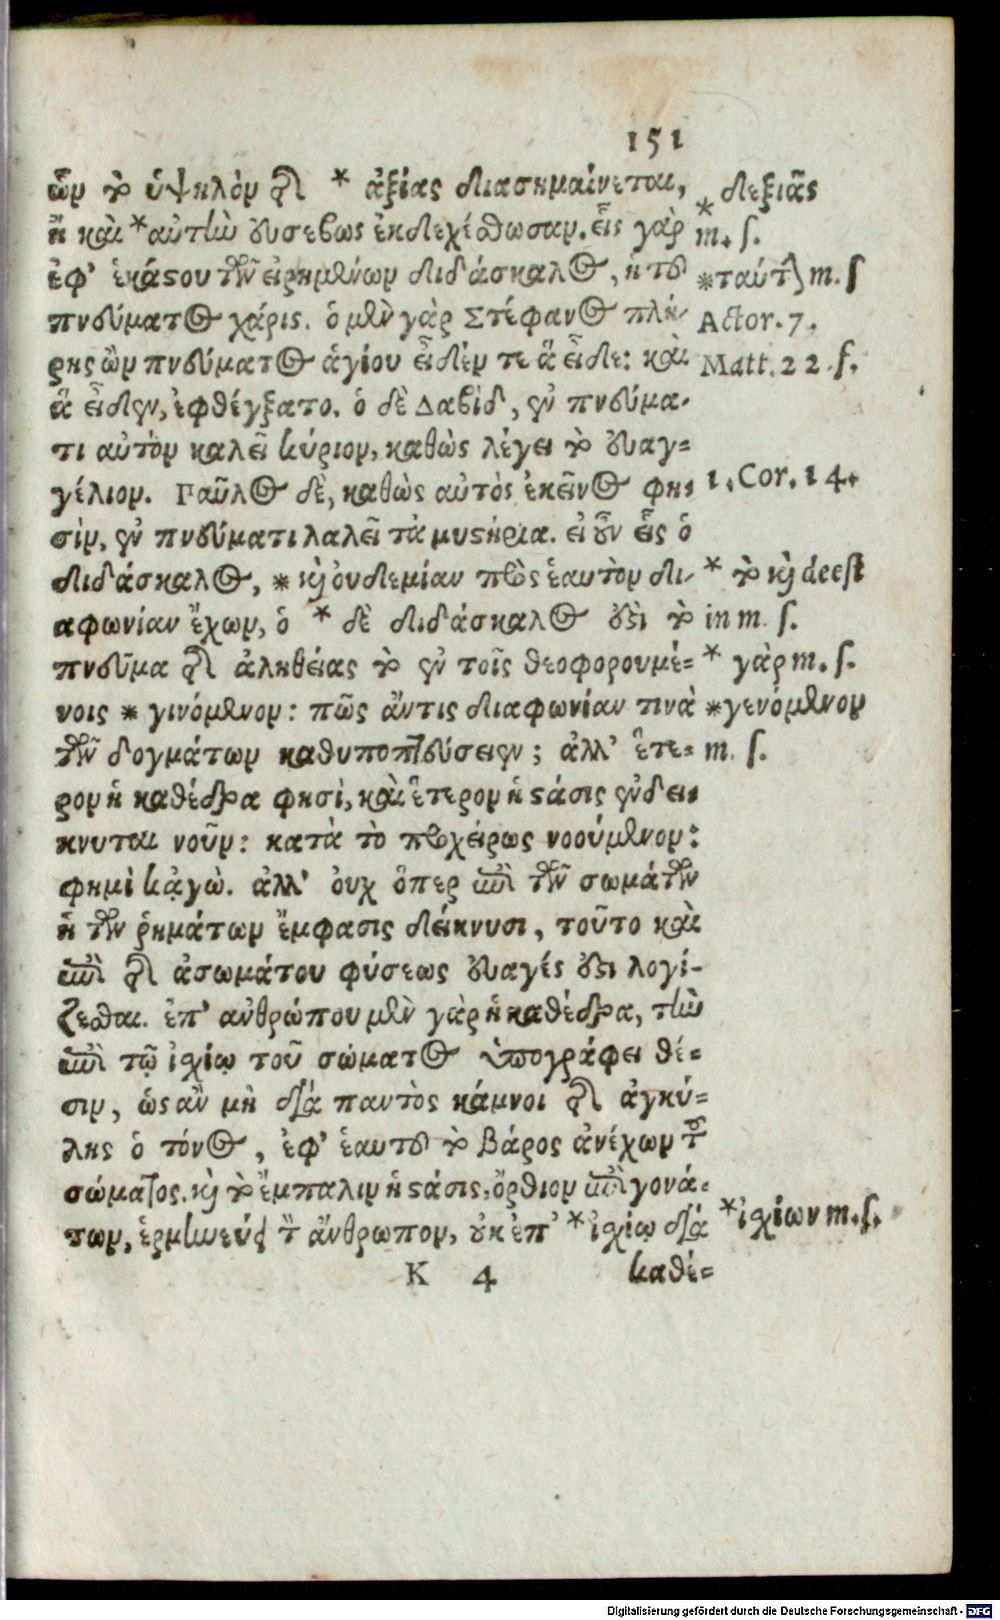 151
ὧν τὸ ὑψηλὸν τῆς * ἀξίας διασημαίνεται, * δεξιᾶς
ἢ καὶ *αὐτὴν εὐσεβῶς ἐκδεχέσθωσαν. εἷς γὰρ m. s.
ἐφ' ἑκάστου τῶν εἰρημένων διδάσκαλος, ἡ τοῦ *ταύτην m. s
πνεύματος χάρις. ὁ μὲν γὰρ Στέφανος πλή- Actor. 7.
ρης ὢν πνεύματος ἁγίου εἶδέν τε ἃ εἶδε: καὶ Matt. 22. s.
ἃ εἶδεν, ἐφθέγξατο. ὁ δὲ Δαβὶδ, ἐν πνεύμα-
τι αὐτὸν καλεῖ κύριον, καθὼς λέγει τὸ εὐαγ-
γέλιον. Παῦλος δὲ, καθὼς αὐτὸς ἐκεῖνος φη- 1. Cor. 14.
σὶν, ἐν πνεύματι λαλεῖ τὰ μυστήρια. εἰ οὖν εἷς ὁ
διδάσκαλος, * καὶ οὐδεμίαν πρὸς ἑαυτὸν δι- * τὸ καὶ deest
αφωνίαν ἔχων, ὁ * δὲ διδάσκαλος ἐστὶ τὸ in m. s.
πνεῦμα τῆς ἀληθείας τὸ ἐν τοῖς θεοφορουμέ- * γὰρ m. s.
νοις * γινόμενον: πῶς ἄν τις διαφωνίαν τινὰ *γενόμενον
τῶν δογμάτων καθυποπτεύσειεν; ἀλλ' ἕτε- m. s.
ρον ἡ καθέδρα φησὶ, καὶ ἕτερον ἡ στάσις ἐνδεί-
κνυται νοῦν: κατὰ τὸ προχείρως νοούμενον:
φημὶ κἀγώ. ἀλλ' οὐχ ὅπερ ἐπὶ τῶν σωμάτων
ἡ τῶν ῥημάτων ἔμφασις δείκνυσι, τοῦτο καὶ
ἐπὶ τῆς ἀσωμάτου φύσεως εὐαγές ἐστι λογί-
ζεσθαι. ἐπ' ἀνθρώπου μὲν γὰρ ἡ καθέδρα, τὴν
ἐπὶ τῷ ἰσχίῳ τοῦ σώματος ὑπογράφει θέ-
σιν, ὡς ἂν μὴ διὰ παντὸς κάμνοι τῆς ἀγκύ-
λης ὁ τόνος, ἐφ' ἑαυτοῦ τὸ βάρος ἀνέχων τοῦ
σώματος. καὶ τὸ ἔμπαλιν ἡ στάσις, ὄρθιον ἐπὶ γονά-
των, ἑρμηνεύει τὸν ἄνθρωπον, οὐκ ἐπ' *ἰσχίῳ διὰ *ἰσχίων m. s.
K 4 καθέ-
Digitalisierung gefördert durch die Deutsche Forschungsgemeinschaft - DFG